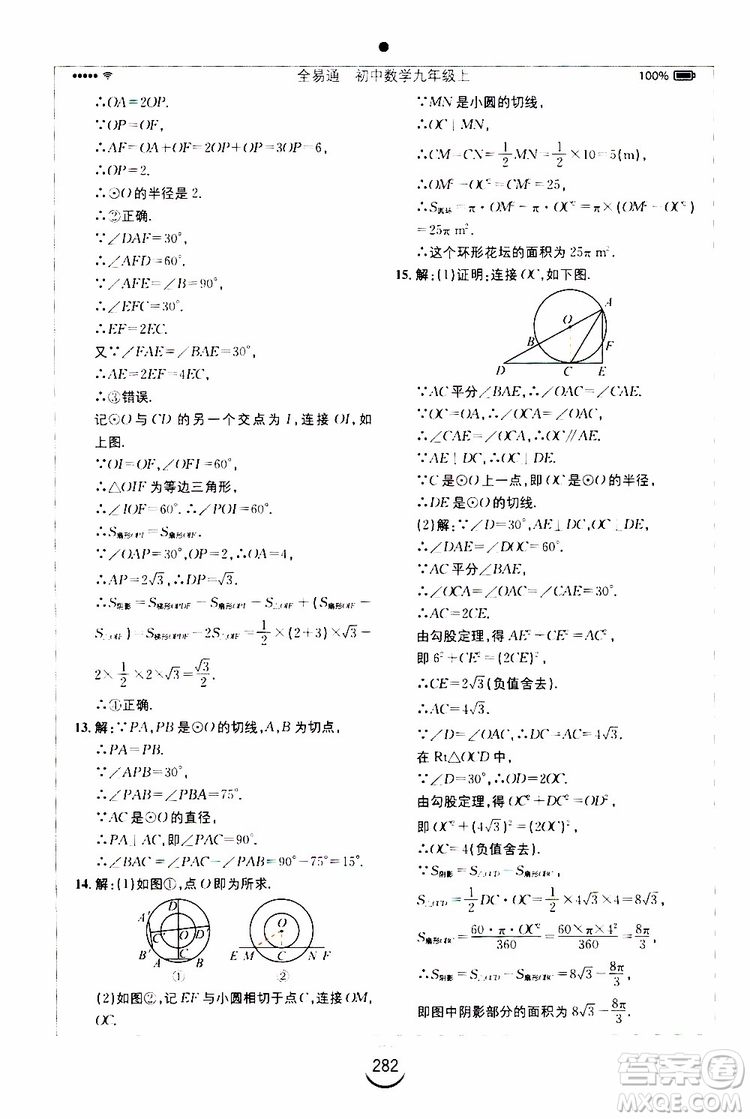 全易通 初中数学九年级上
100%
∴OA=2OP.
∵OP=OF,
∴AF=OA+OF=2OP+OP=3OP=6,
∴OP=2.
∴⊙O的半径是2.
∴②正确.
∵∠DAF=30°,
∴∠AFD=60°.
∵∠AFE=∠B=90°,
∴∠EFC=30°.
∴EF=2EC.
又∵∠FAE=∠BAE=30°,
∴AE=2EF=4EC,
∴③错误.
记⊙O与CD的另一个交点为I,连接OI,如
上图.
∵OI=OF,∠OFI=60°,
∴△OIF为等边三角形,
∴∠IOF=60°.∴∠POI=60°.
∴S扇形OPI=S扇形OIF.
∵∠OAP=30°,OP=2,
∴AP=2√3,∴DP=√3.
∴S阴影=S梯形OPDF-S扇形OPI-S△OIF+(S扇形OIF-
S△OIF)=S梯形OPDF-2S△OIF=1/2×(2+3)×√3-
2×1/2×2×√3=√3/2.
∴①正确.
13.解:∵PA,PB是⊙O的切线,A,B为切点,
∴PA=PB.
∵∠APB=30°,
∴∠PAB=∠PBA=75°.
∵AC是⊙O的直径,
∴PA⊥AC,即∠PAC=90°.
∴∠BAC=∠PAC-∠PAB=90°-75°=15°.
14.解:(1)如图①,点O即为所求.
D
A′
C′
O
D′
C
B′
A
B
①
O
E
M
C
N
F
②
(2)如图②,记EF与小圆相切于点C,连接OM,
OC.
∵MN是小圆的切线,
∴OC⊥MN.
∴CM=CN=1/2MN=1/2×10=5(m),
∴OM²-OC²=CM²=25,
∴S圆环=π·OM²-π·OC²=π×(OM²-OC²)=
25π m².
∴这个环形花坛的面积为25π m².
15.解:(1)证明:连接OC,如下图.
A
O
B
F
D
C
E
∵AC平分∠BAE,∴∠OAC=∠CAE.
∵OC=OA,∴∠OCA=∠OAC.
∴∠CAE=∠OCA,∴OC∥AE.
∵AE⊥DC,∴OC⊥DE.
∵C是⊙O上一点,即OC是⊙O的半径,
∴DE是⊙O的切线.
(2)解:∵∠D=30°,AE⊥DE,OC⊥DE,
∴∠DAE=∠DOC=60°.
∵AC平分∠BAE,
∴∠OCA=∠OAC=∠CAE=30°.
∴AC=2CE.
由勾股定理,得AE²+CE²=AC²,
即6²+CE²=(2CE)²,
∴CE=2√3(负值舍去).
∴AC=4√3.
∵∠D=∠OAC,∴CD=AC=4√3.
在Rt△OCD中,
∵∠D=30°,∴OD=2OC.
由勾股定理,得OC²+DC²=OD²,
即OC²+(4√3)²=(2OC)²,
∴OC=4(负值舍去).
∵S阴影=S△OCD-S扇形OBC,
S△OCD=1/2DC·OC=1/2×4√3×4=8√3,
S扇形OBC=60·π·OC²/360=60×π×4²/360=8π/3,
∴S阴影=S△OCD-S扇形OBC=8√3-8π/3,
即图中阴影部分的面积为8√3-8π/3.
282
答案圈
MXQE.COM